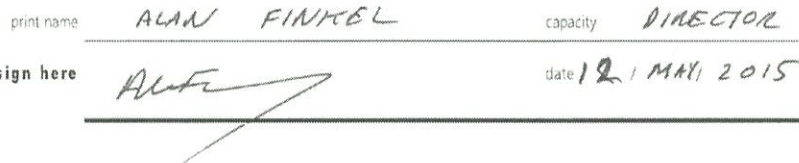 print name ALAN FINKEL capacity DIRECTOR
sign here date 12 / MAY / 2015